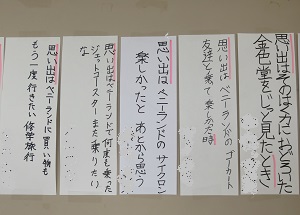 思い出はそのはかにねどろいた
金色堂をじっと見たとき
思い出はベニーランドのゴーカート
友達と乗て楽しった時
思い出はベニーランドのサイクロン
楽しかったとあとから思う
思い出はベニーランドで何度も乗った
ジェットコースターまた乗りたいな
思い出はベニーランドに買い物も
もう一度行きたい修学旅行